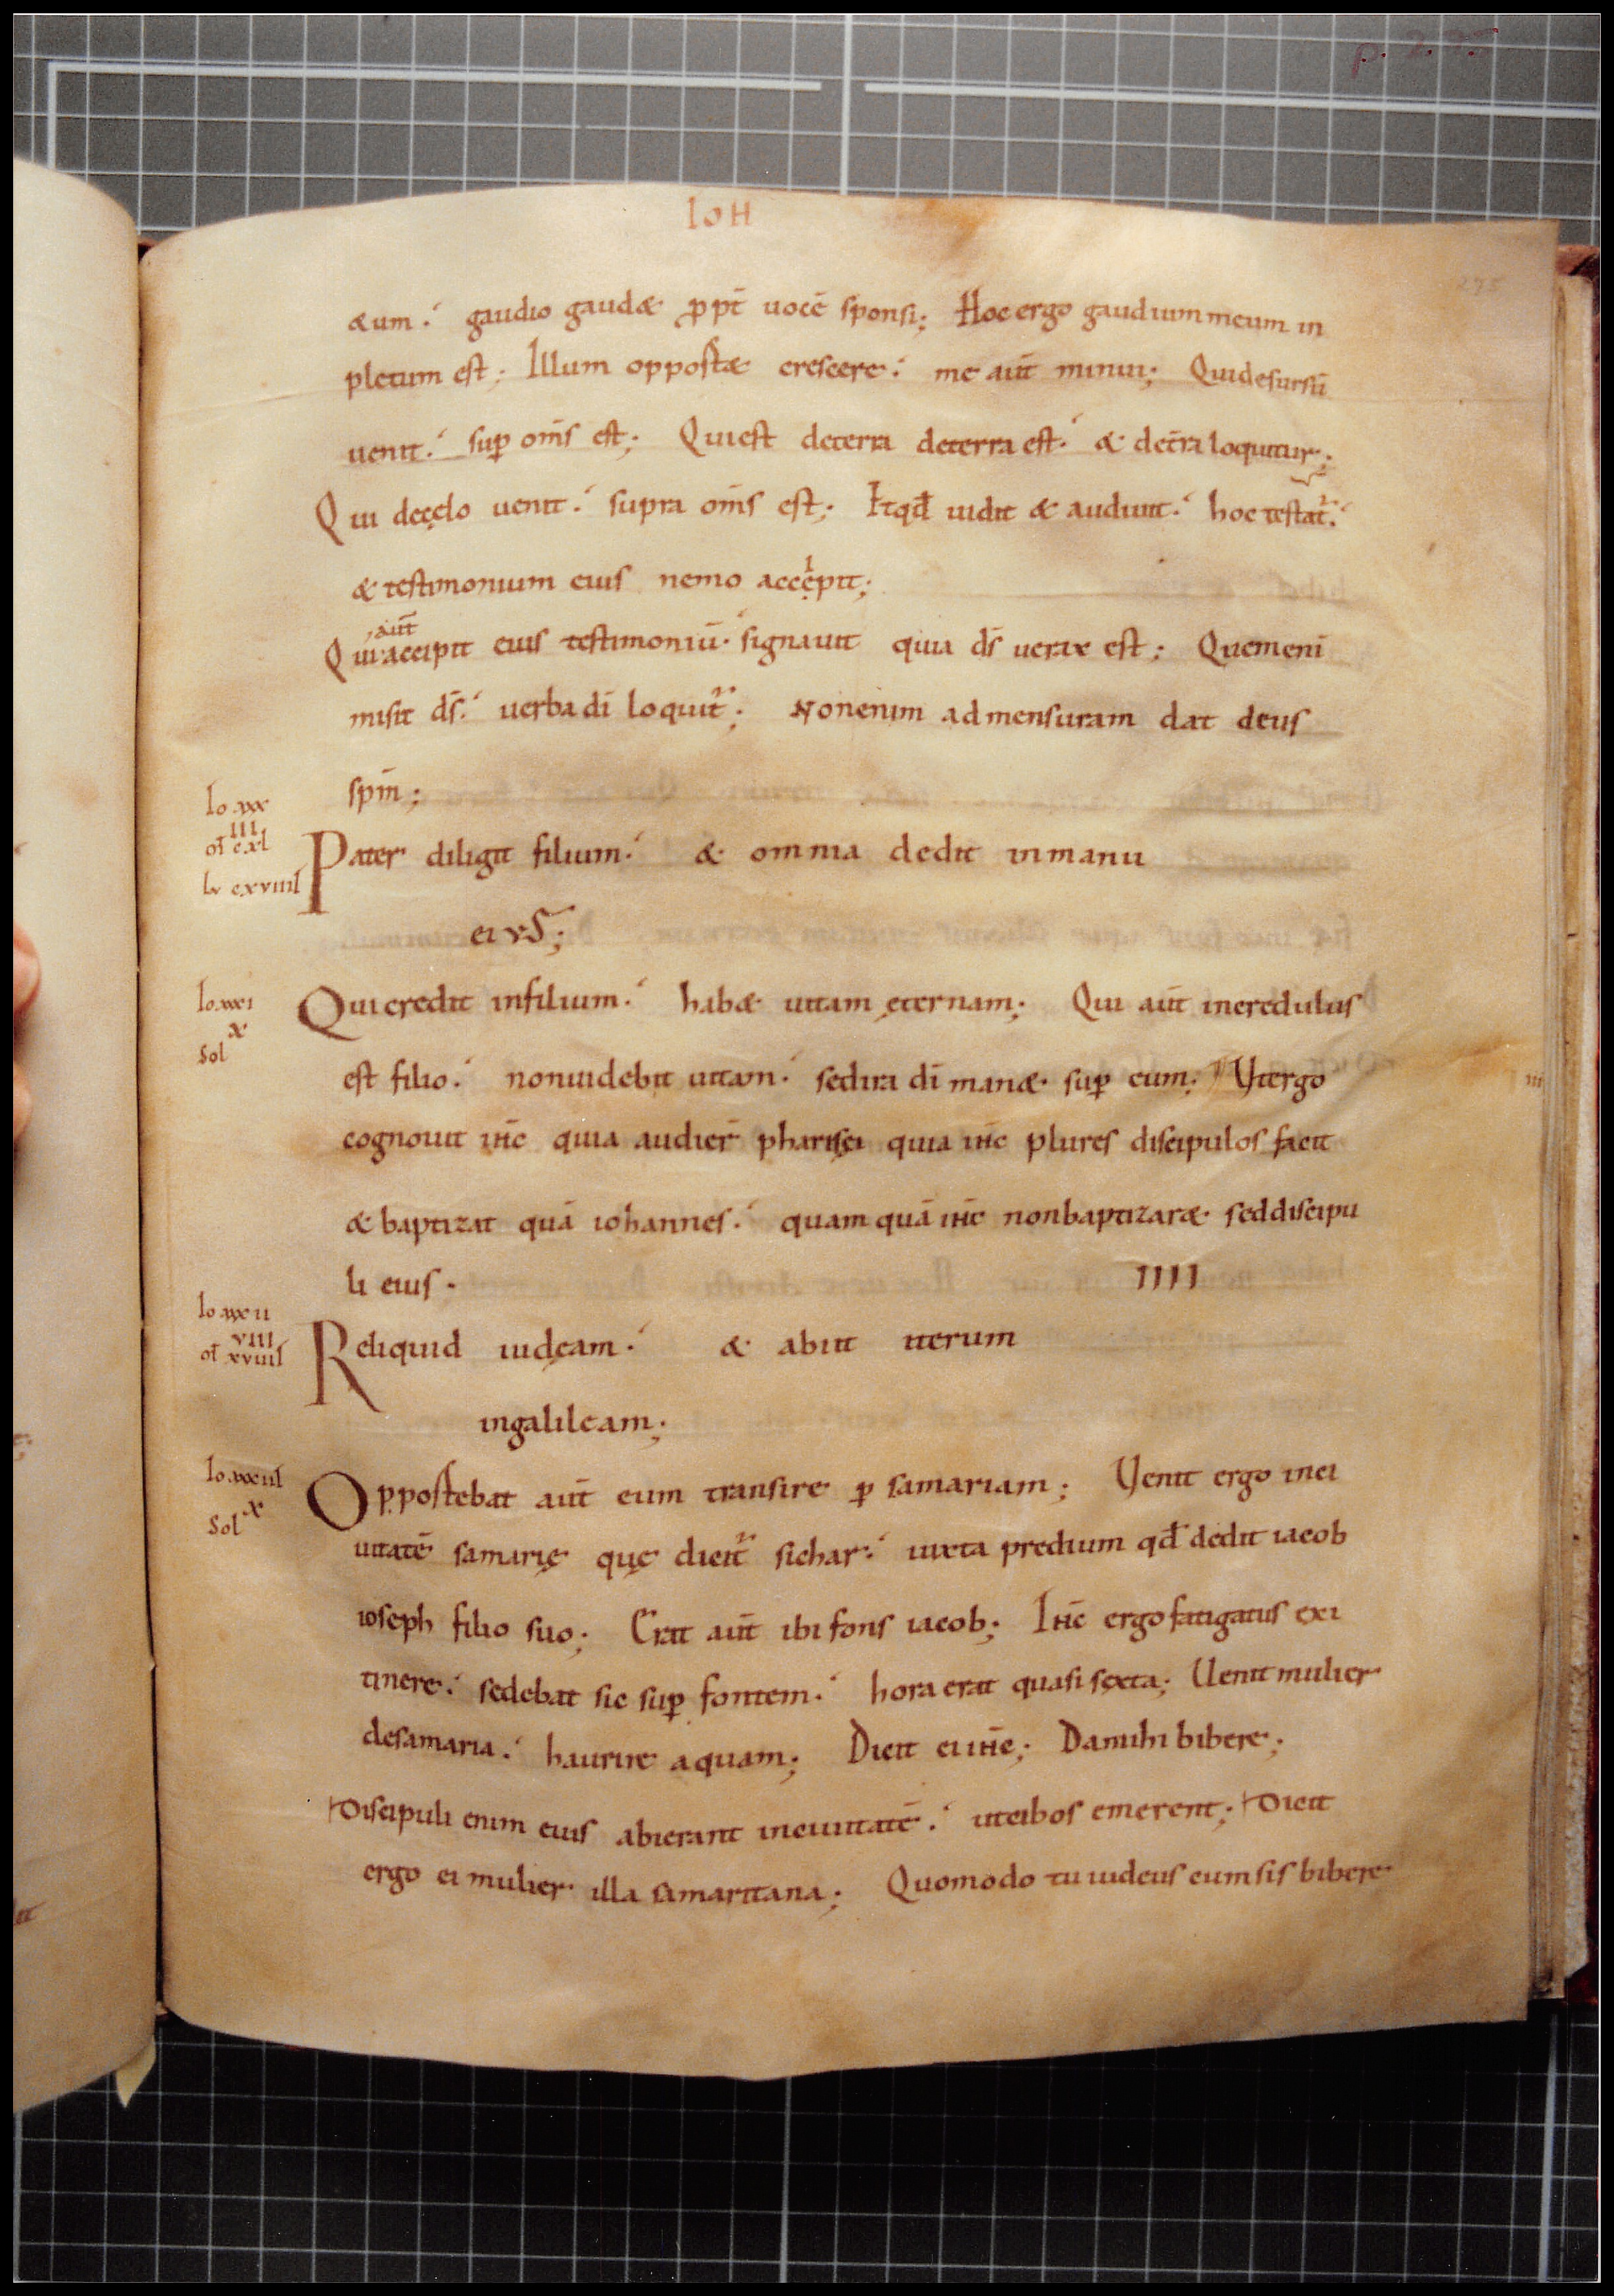 p. 225
IOH
275
&um·́ gaudio gaud& ꝓpt̄ uocē sponsi; Hoc ergo gaudium meum in
pletum est; Illum oppost& crescere·́ me aūt minui; Qui desursū
uenit·́ sup̄ om̄s est; Qui est deterra deterra est·́ & det̄ra loquitur;
Qui decęlo uenit·́ supra om̄s est; Et qđ uidit & audiuit·́ hoc testat̄·́
& testimonium eius nemo accępit;
aūt
Qui accipit eius testimoniū·́ signauit quia d̄s uerax est; Quem eni
misit d̄s·́ uerba dī loquit̄; Non enim ad mensuram dat deus
sp̄m;
Io xxx
III
ot̄ cxl
Pater diligit filium·́ & omnia dedit inmanu
lv cxviiil
eius;
Io xxxi
Qui credit infilium·́ hab& uitam ęternam; Qui aūt incredulus
x
Sol
est filio·́ non uidebit uitam·́ sed ira dī man& sup̄ eum; Ut ergo
cognouit ih̄c quia audier̄ pharisęi quia ih̄c plures discipulos facit
& baptizat quā iohannes·́ quam quā ih̄c non baptizar& sed discipu
li eius·
IIII
Io xxxii
VIII
ot̄ xviiil
Reliquid iudęam·́ & abiit iterum
ingalileam;
Io xxxiil
x
Sol
Oppostebat aūt eum transire ꝑ samariam; Uenit ergo inci
uitatē samarię quę dicit̄ sichar·́ iuxta predium qđ dedit iacob
ioseph filio suo; Erat aūt ibi fons iacob; Ih̄c ergo fatigatus exi
tinere·́ sedebat sic sup̄ fontem·́ hora erat quasi sexta; Uenit mulier
desamaria·́ haurire aquam; Dicit ei ih̄c; Da mihi bibere;
Discipuli enim eius abierant inciuitatē·́ ut cibos emerent; Dicit
ergo ei mulier illa samaritana; Quomodo tu iudeus cum sis bibere